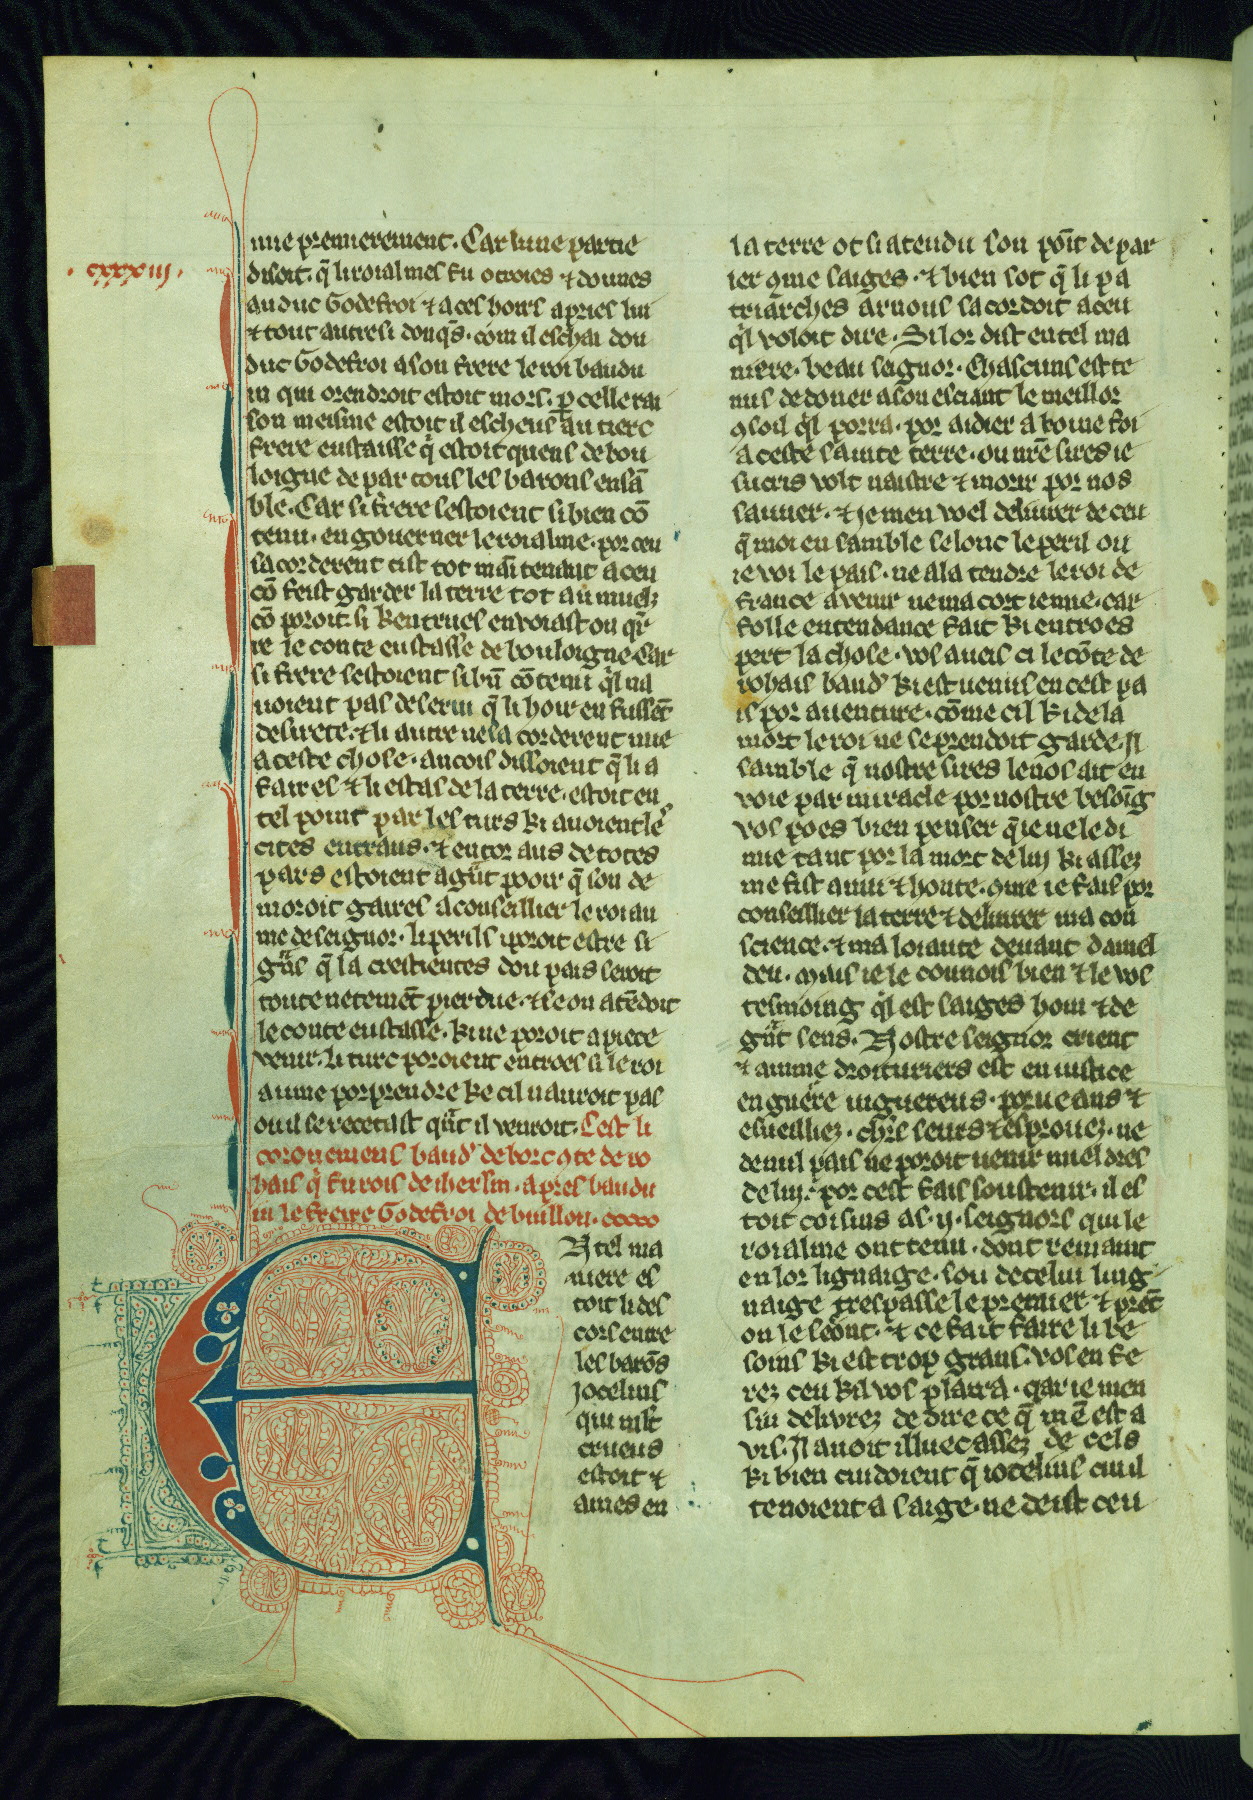 mie premierement. Car lune partie
.cxxxiij.
disoit. q̄ li roialmes fu otroies ⁊ dounes
au duc Godefroi ⁊ a ces hoirs apries lui
⁊ tout autresi donq̄s. com il eschai dou
duc Godefroi a son frere le roi baudu
in qui orendroit estoit mors. ꝑ celle rai
son meisme estoit il escheus au tierc
frere eustaisse q̇ estoit quens de bou
loigne de par tous les barons ensā
ble. Car si frere sestoient si bien cō
tenu. en gouverner le roialme. por ceu
sacorderent cist tot maītenant a ceu
cō feist garder la terre tot au muelz
cō proit. si kentrues envoiast on qr̄
re le conte eustasse de bouloigne. Car
si frere sestoient si bn̄ cōtenu ql na
voient pas deservi q̄ li hoir en fussēt
desirete. ⁊ li autre ne sa corderent mie
a ceste chose. ancois dissoient q̄ li a
faires ⁊ li estas de la terre. estoit en
tel point par les turs ki avoient les
cites entraus. ⁊ entor aus de totes
pars estoient a gūt pooir q̄ son de
moroit gaires a conseillier le roiau
me de seignor. li perils i poroit estre si
gūs q̄ la crestientes dou pais seroit
toute netemēt pierdue. ⁊ se on atēdoit
le conte eustasse. ki ne poroit a piece
venir. li turc poroient entroes si le roi
aume porprendre ke cil nauroit pas
ou il se recetast qūt il venroit. Cest li
coronemens baud' de borc ꝯte de ro
hais q̇ fu rois de iherlm. apres baudu
in le freire Godefroi de buillon.
EN tel ma
niere es
toit li des
cors entre
les barōs
Jocelins
qui mlt
crueus
estoit ⁊
ames en
la terre ot si atendu son poīt de par
ler ꝯme saiges. ⁊ bien sot q̄ li pa
triarches arnous sacordoit a ceu
ql voloit dire. Si lor dist en tel ma
niere. beau seignor. Chascuns est te
nus de doner a son esciant le meillor
ꝯsoil ql porra. por aidier a bone foi
a ceste sainte terre. ou nrē sires ie
sucris volt naistre ⁊ morir por nos
sauver. ⁊ je men voel delivrer de ceu
q̄ moi en samble selonc le peril ou
ie voi le pais. ne a la tendre le roi de
france a venir ne ma cort ienne. car
folle entendance fait ki entroes
pert la chose. vos aveis ci le cōte de
rohais baud' ki est venus en cest pa
is por aventure. cōme cil ki de la
mort le roi ne se prendoit garde. Il
samble q̄ nostre sires le nos ait en
voie par miracle por nostre besoīg
vos poes bien penser q̄ ie ne le di
mie tant por la mort de lui ki assez
me fist anui ⁊ honte. ꝯme ie fais por
conseillier la terre ⁊ delivrer ma con
science. ⁊ ma loiaute devant damel
deu. Mais ie le connois bien ⁊ le vos
tesmoing ql est saiges hom ⁊ de
gūt sens. Nostre seignor crient
⁊ aimme droituriers est en iustice
en guere viguereus. porveans ⁊
esveilliez. chrs seurs ⁊ esprouez. ne
de nul pais ne poroit venir mieldres
de lui. ⁊ por cest fais soustenir. il es
toit coisins as .ij. seignors qui le
roialme ont tenu. dont remaint
en lor lignaige. son de celui ling
naige trespasse le premier ⁊ prēt
on le seōnt. ⁊ ce fait faire li be
soins ki est trop grans. vos en fe
rez ceu kil vos plaira. qar ie men
sui delivrez de dire ce q̄ m ē est a
vis. Il avoit illuec assez de cels
ki bien cuidoient q̄ iocelins cui il
tenoient a saige. ne deist ceu